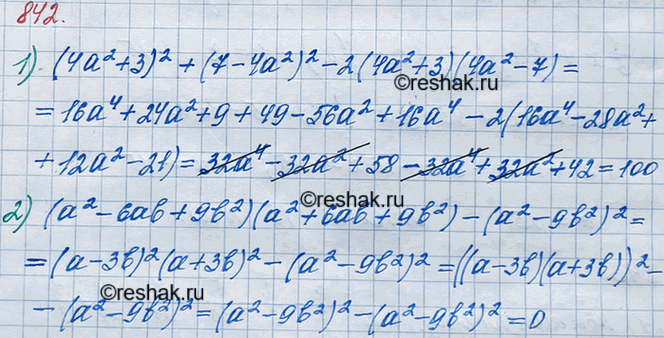 842.
1) (4a² + 3)² + (7 - 4a²)² - 2(4a² + 3)(4a² - 7) =
©reshak.ru
= 16a⁴ + 24a² + 9 + 49 - 56a² + 16a⁴ - 2(16a⁴ - 28a² +
+ 12a² - 21) = 32a⁴ - 32a² + 58 - 32a⁴ + 32a² + 42 = 100
©reshak.ru
2) (a² - 6ab + 9b²)(a² + 6ab + 9b²) - (a² - 9b²)² =
= (a - 3b)²(a + 3b)² - (a² - 9b²)² = ((a - 3b)(a + 3b))² -
©reshak.ru
- (a² - 9b²)² = (a² - 9b²)² - (a² - 9b²)² = 0